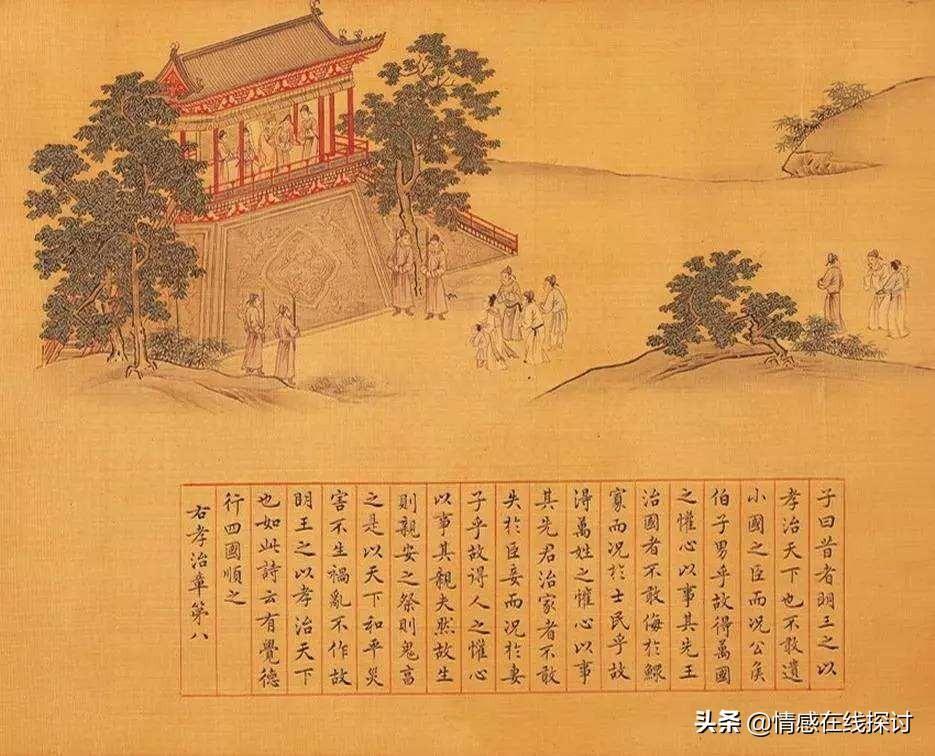 子曰昔者明王之以
孝治天下也不敢遺
小國之臣而况公侯
伯子男乎故得萬國
之懽心以事其先王
治國者不敢侮於鰥
寡而况於士民乎故
得萬姓之懽心以事
其先君治家者不敢
失於臣妾而况於妻
子乎故得人之懽心
以事其親夫然故生
則親安之祭則鬼享
之是以天下和平災
害不生禍亂不作故
明王之以孝治天下
也如此詩云有覺德
行四國順之
右孝治章第八
头条 @情感在线探讨